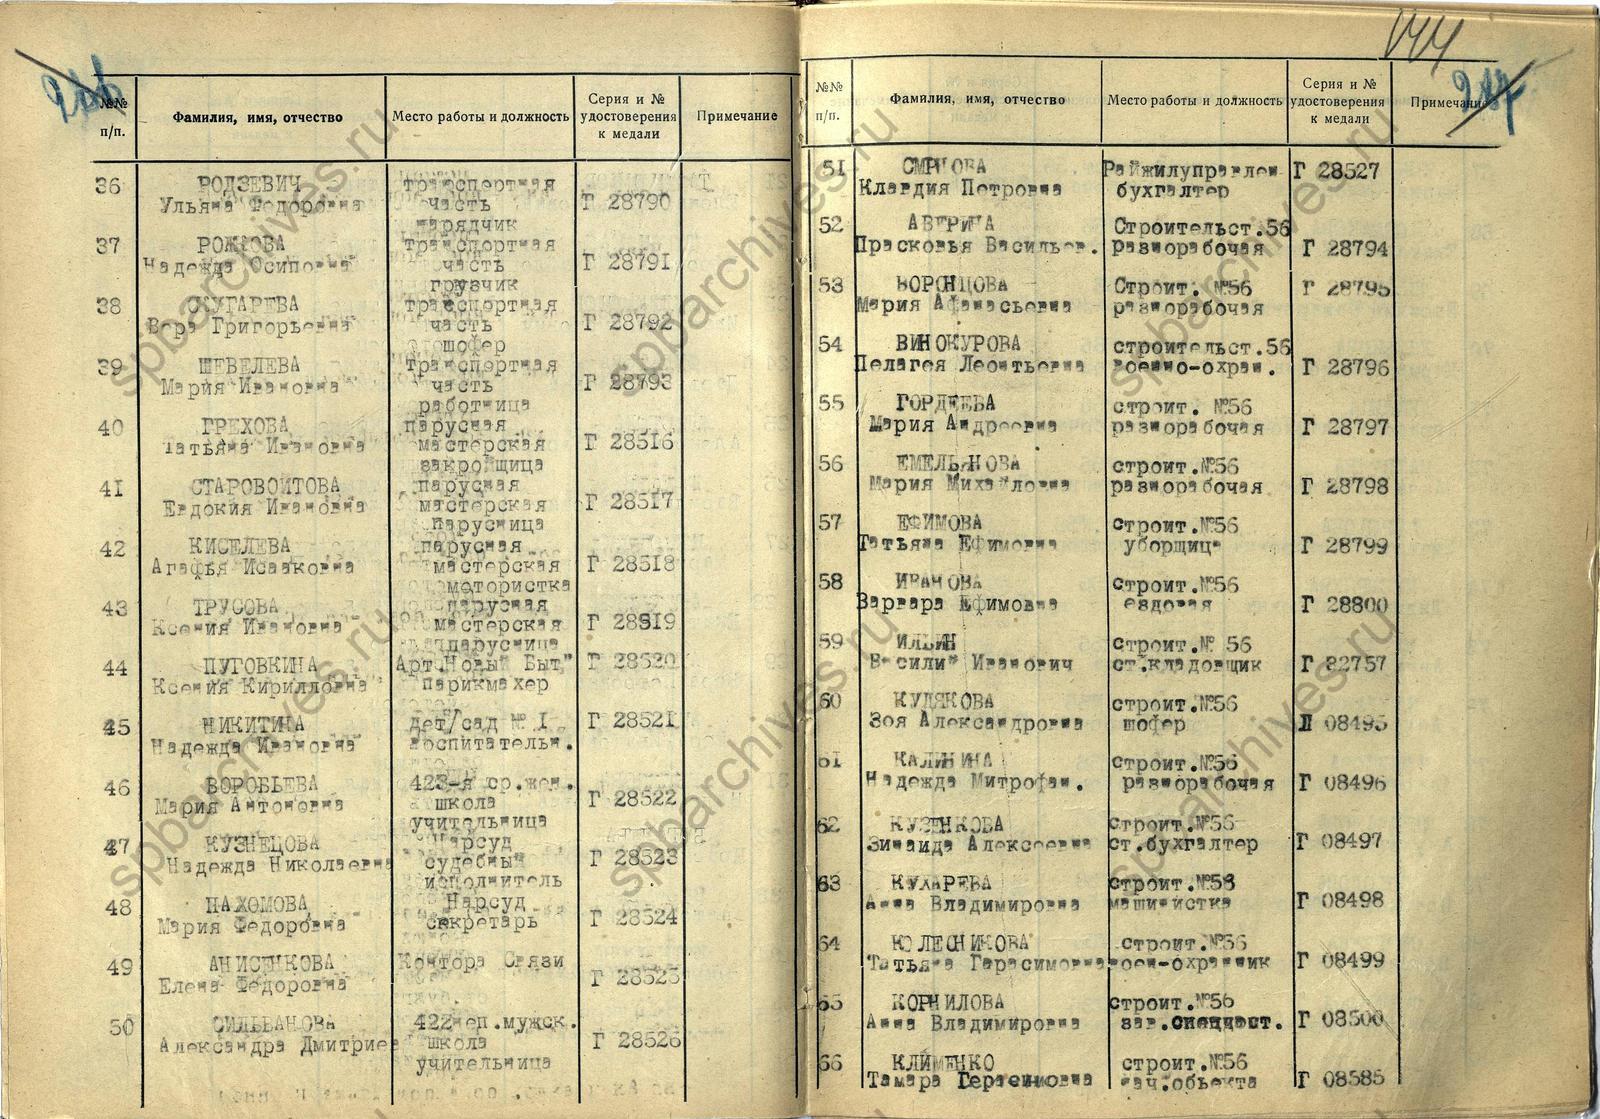 №№ п/п.
Фамилия, имя, отчество
Место работы и должность
Серия и № удостоверения к медали
Примечание
36 РОДЗЕВИЧ транспортная
Ульяна Федоровна часть Г 28790
нарядчик
37 РОЖКОВА транспортная
Надежда Осиповна часть Г 28791
грузчик
38 СКУГАРЕВА транспортная
Вера Григорьевна часть Г 28792
шофер
39 ШЕВЕЛЕВА транспортная
Мария Ивановна часть Г 28793
работница
40 ГРЕХОВА парусная
Татьяна Ивановна мастерская Г 28516
закройщица
41 СТАРОВОЙТОВА парусная
Евдокия Ивановна мастерская Г 28517
парусница
42 КИСЕЛЕВА парусная
Агафья Исааковна мастерская Г 28518
мотористка
43 ТРУСОВА парусная
Ксения Ивановна мастерская Г 28519
парусница
44 ПУГОВКИНА Арт.Новый Быт" Г 28520
Ксения Кирилловна парикмахер
45 НИКИТИНА дет/сад № 1 Г 28521
Надежда Ивановна воспитательн.
46 ВОРОБЬЕВА 423-я ср.жен.
Мария Антоновна школа Г 28522
учительница
47 КУЗНЕЦОВА Нарсуд
Надежда Николаевна судебный Г 28523
исполнитель
48 ПАХОМОВА Нарсуд
Мария Федоровна секретарь Г 28524
49 АНИСЕНКОВА Контора Связи
Елена Федоровна Г 28525
50 СИЛЬВАНОВА 422 неп.мужск.
Александра Дмитриев школа Г 28526
учительница
144
217
№№ п/п.
Фамилия, имя, отчество
Место работы и должность
Серия и № удостоверения к медали
Примечание
51 СМРНОВА Райжилуправлен Г 28527
Клавдия Петровна бухгалтер
52 АВЕРИНА Строительст.56
Прасковья Васильев. разнорабочая Г 28794
53 ВОРОНЦОВА Строит. №56 Г 28795
Мария Афанасьевна разнорабочая
54 ВИНОКУРОВА строительст.56
Пелагея Леонтьевна военно-охран. Г 28796
55 ГОРДЕЕВА строит. №56
Мария Андреевна разнорабочая Г 28797
56 ЕМЕЛЬЯНОВА строит.№56
Мария Михайловна разнорабочая Г 28798
57 ЕФИМОВА строит.№56
Татьяна Ефимовна уборщица Г 28799
58 ИВАНОВА строит.№56
Варвара Ефимовна ездовая Г 28800
59 ИЛЬИН строит.№ 56
Василий Иванович ст.кладовщик Г 32757
60 КУДЯКОВА строит.№56
Зоя Александровна шофер Л 08495
61 КАЛИНИНА строит.№56
Надежда Митрофан. разнорабочая Г 08496
62 КУЗЕНКОВА строит.№56
Зинаида Алексеевна ст.бухгалтер Г 08497
63 КУХАРЕВА строит.№56
Анна Владимировна машинистка Г 08498
64 КОЛЕСНИКОВА строит.№56
Татьяна Герасимовна воен-охранник Г 08499
65 КОРНИЛОВА строит.№56
Анна Владимировна зав. Г 08500
66 КЛИМЕНКО строит.№56
Тамара Герасимовна нач.обьекта Г 08585
spbarchives.ru
spbarchives.ru
spbarchives.ru
spbarchives.ru
spbarchives.ru
spbarchives.ru